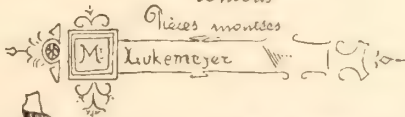 Pièces montées
Mr Lukemeyer